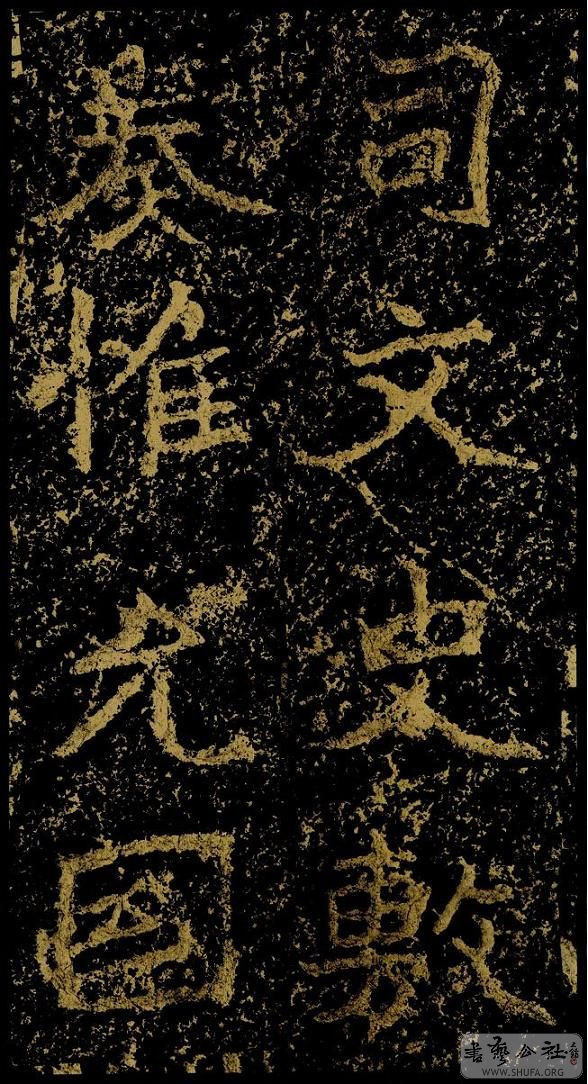 司文史敷
奏惟允國
書藝公社
WWW.SHUFA.ORG